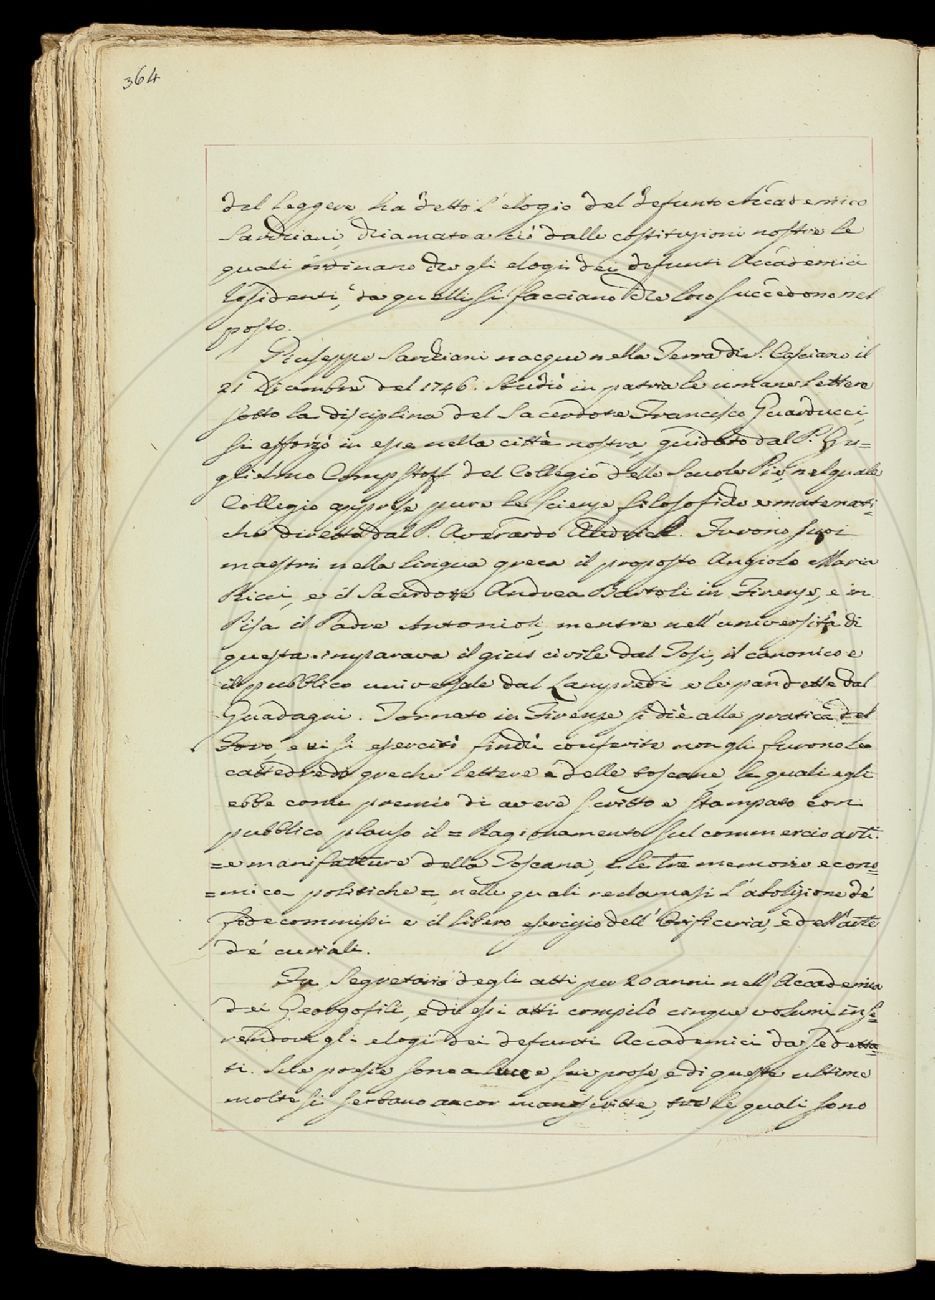 364
del leggere ha detto l'elogio del defunto Accademico
Sarchiani, chiamato a ciò dalle costituzioni nostre le
quali ordinano che gli elogii dei defunti Accademici
residenti, da quelli si facciano che loro succedono nel
posto.
Giuseppe Sarchiani nacque nella Terra di S. Casciano il
21 Dicembre del 1746. Studiò in patria le umane lettere
sotto la disciplina del Sacerdote Francesco Guarducci,
si afforzò in esse nella città nostra, guidato dal P. Gu=
glielmo Compstoff del Collegio delle Scuole Pie, nel quale
Collegio apprese pure le scienze filosofiche e matemati=
che diretto dal P. Averardo Audrich. Furono suoi
maestri nella lingua greca il proposto Angiolo Maria
Ricci, e il Sacerdote Andrea Bartoli in Firenze, e in
Pisa il Padre Antonioli, mentre nell'università di
questa imparava il gius civile dal Tosi, il canonico e
il pubblico universale dal Lampredi e le pandette dal
Guadagni. Tornato in Firenze si diè alla pratica del
Foro, e vi si esercitò finchè conferite non gli furono le
cattedre di greche lettere e delle toscane, le quali egli
ebbe come premio di avere scritto e stampato con
pubblico plauso il = Ragionamento sul commercio arti
= e manifatture della Toscana, e le tre memorie econo=
=mico- politiche =, nelle quali reclamasi l'abolizione de'
fidecommissi e il libero esercizio dell'Orificeria, e dell'arte
de' curiali.
Fu Segretario degli atti per 20 anni nell'Accademia
dei Georgofili, e di essi atti compilò cinque volumi inse=
rendovi gli elogi dei defunti Accademici da se detta=
ti. Sue poesie sono a luce e sue prose, e di queste ultime
molte si serbano ancor manoscritte, tra le quali sono